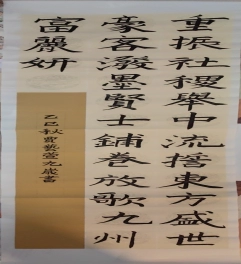 重振社稷舉中流擔東方盛世
豪客潑墨賢士鋪卷放歌九州
富麗妍
乙巳秋賈藝萱九歲書